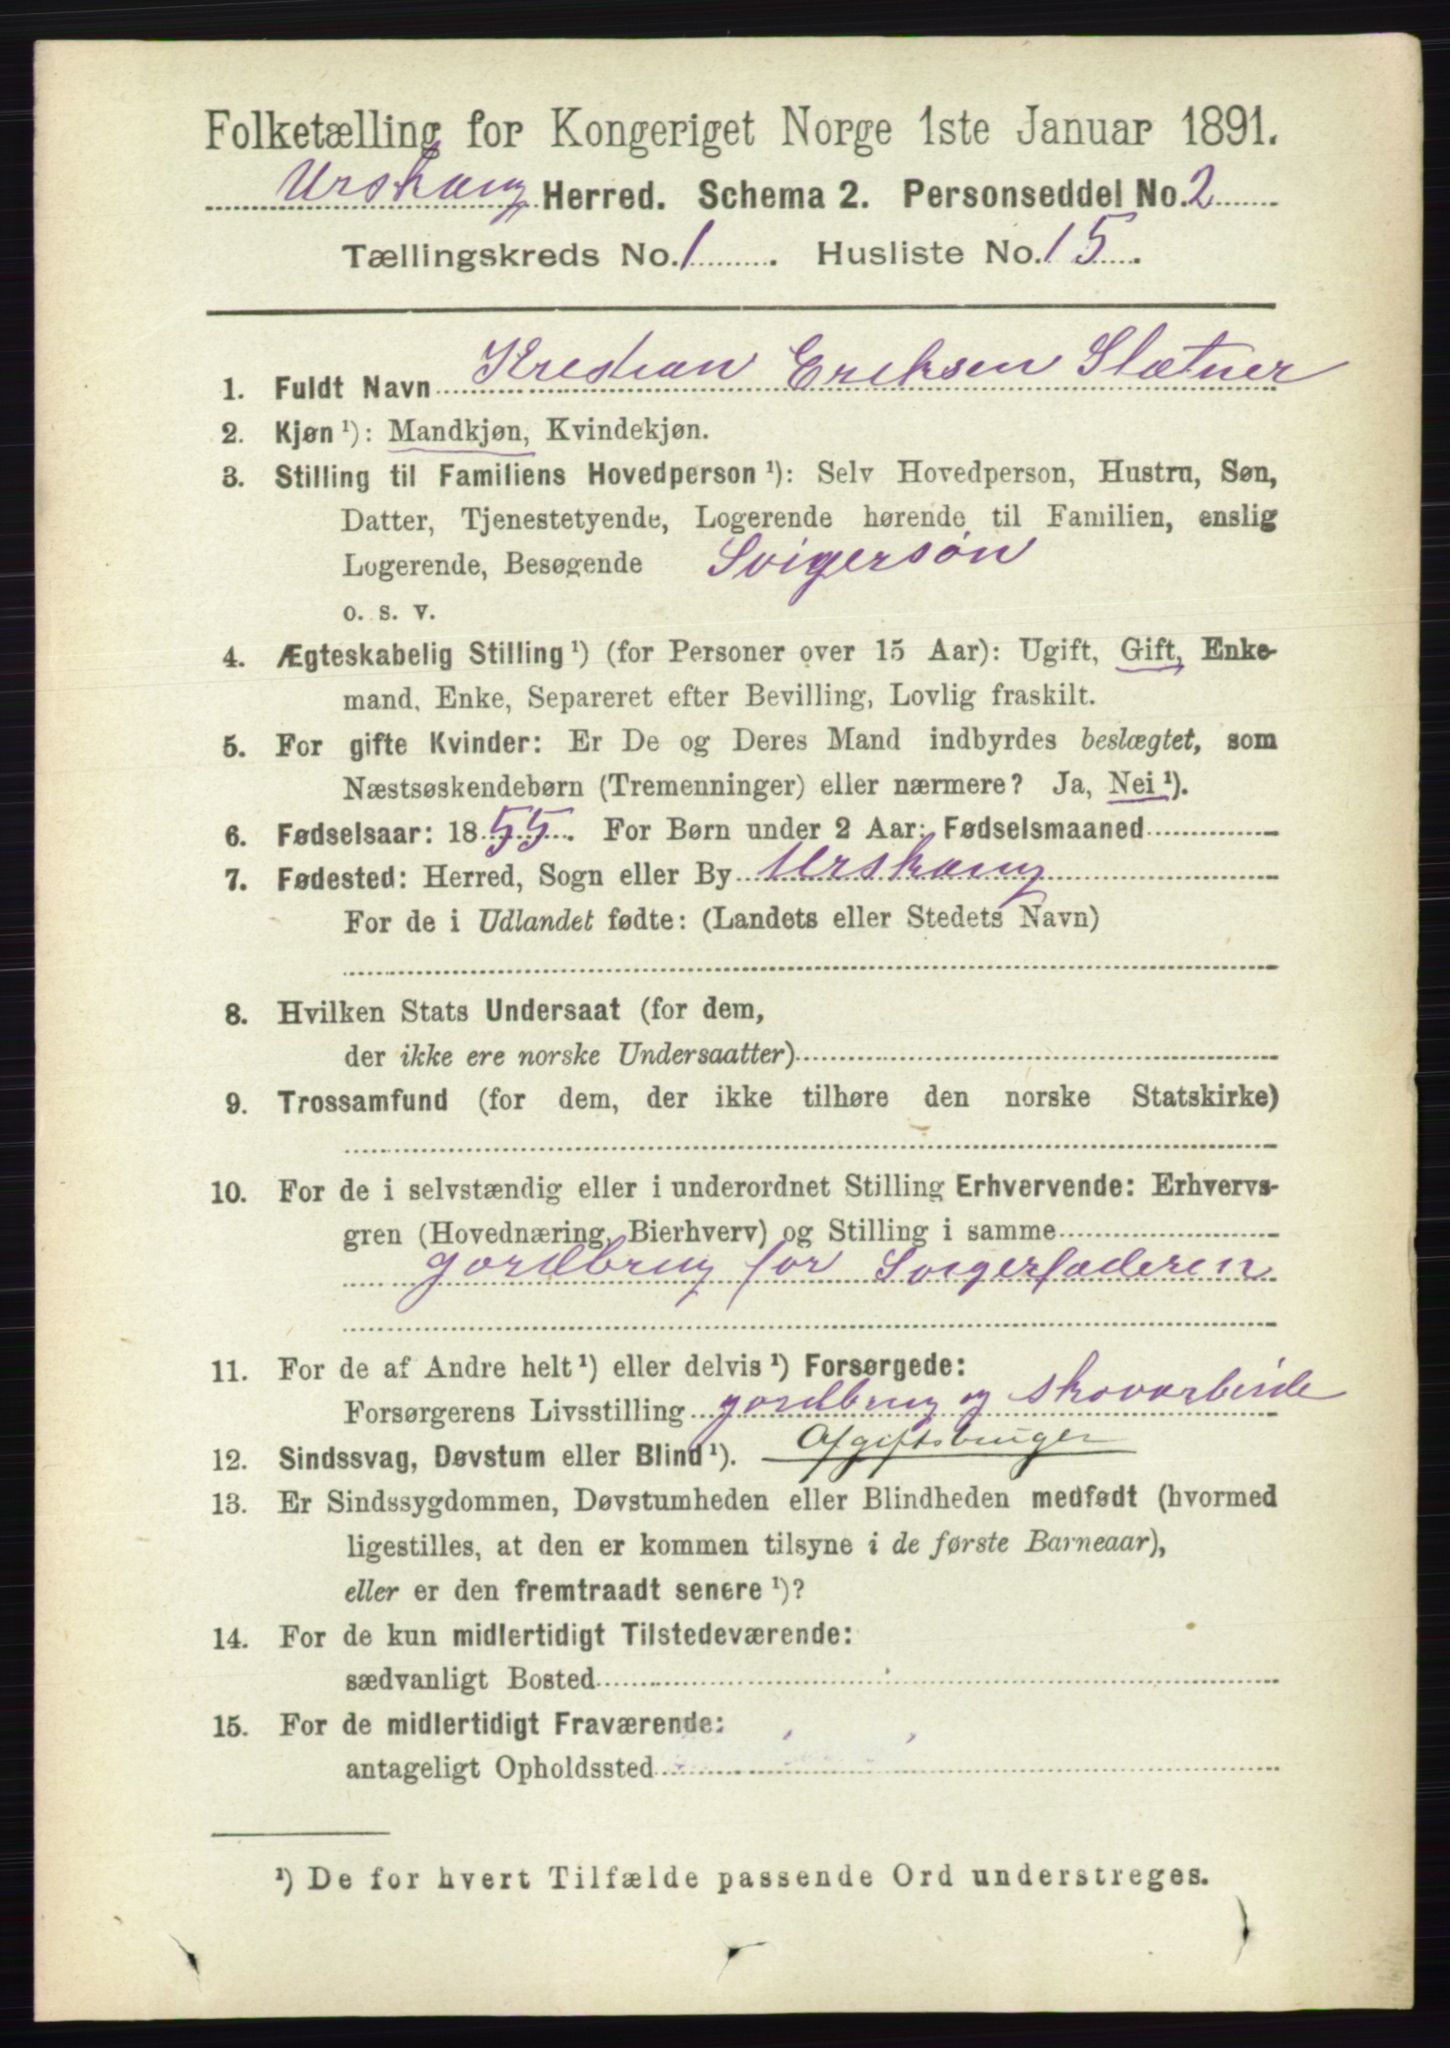 Folketælling for Kongeriget Norge 1ste Januar 1891.
Urskaug Herred. Schema 2. Personseddel No. 2
Tællingskreds No. 1. Husliste No. 15.
1. Fuldt Navn Kristian Eriksen Slætner
2. Kjøn ¹): Mandkjøn, Kvindekjøn.
3. Stilling til Familiens Hovedperson ¹): Selv Hovedperson, Hustru, Søn,
Datter, Tjenestetyende, Logerende hørende til Familien, enslig
Logerende, Besøgende Svigersøn
o. s. v.
4. Ægteskabelig Stilling ¹) (for Personer over 15 Aar): Ugift, Gift, Enke-
mand, Enke, Separeret efter Bevilling, Lovlig fraskilt.
5. For gifte Kvinder: Er De og Deres Mand indbyrdes beslægtet, som
Næstsøskendebørn (Tremenninger) eller nærmere? Ja, Nei ¹).
6. Fødselsaar: 1855. For Børn under 2 Aar: Fødselsmaaned
7. Fødested: Herred, Sogn eller By Urskaug
For de i Udlandet fødte: (Landets eller Stedets Navn)
8. Hvilken Stats Undersaat (for dem,
der ikke ere norske Undersaatter)
9. Trossamfund (for dem, der ikke tilhøre den norske Statskirke)
10. For de i selvstændig eller i underordnet Stilling Erhvervende: Erhvervs-
gren (Hovednæring, Bierhverv) og Stilling i samme
jordbrug for Svigerfaderen
11. For de af Andre helt ¹) eller delvis ¹) Forsørgede:
Forsørgerens Livsstilling jordbrug og skovarbeide
12. Sindssvag, Døvstum eller Blind ¹). Afgiftsbruger
13. Er Sindssygdommen, Døvstumheden eller Blindheden medfødt (hvormed
ligestilles, at den er kommen tilsyne i de første Barneaar),
eller er den fremtraadt senere ¹)?
14. For de kun midlertidigt Tilstedeværende:
sædvanligt Bosted
15. For de midlertidigt Fraværende:
antageligt Opholdssted
¹) De for hvert Tilfælde passende Ord understreges.